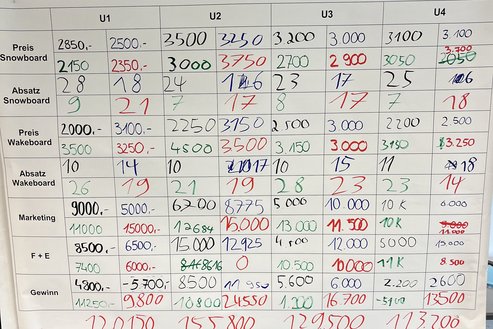 U1 U2 U3 U4
2850,- 2500,- 3500 3250 3.200 3.000 3100 3.100
Preis Snowboard
2150 2350,- 3000 3750 2700 2900 3050 3.700
Absatz Snowboard
28 18 24 23 17 25
9 21 7 17 8 17 7 18
Preis Wakeboard
2000,- 3100,- 2250 3150 2500 3.000 2200 2.500
3500 3250,- 4500 3500 3.150 3.000 3150 3.250
Absatz Wakeboard
10 14 10 17 10 15 11 18
26 19 21 19 28 23 23 14
Marketing
9000,- 5000,- 6200 8775 5.000 10.000 10K 6.000
11000 15000,- 12684 15.000 13.000 11.500 10K 11.000
F + E
8500,- 6500,- 15000 12925 12.000 5000
7400 6000,- 0 10.500 10000 11K 8.500
Gewinn
4800,- -5700,- 8500 5.600 6.000 2.200 2600
11250,- 9800 10800 24550 16.700 -5100 13500
120150 155800 129500 113200